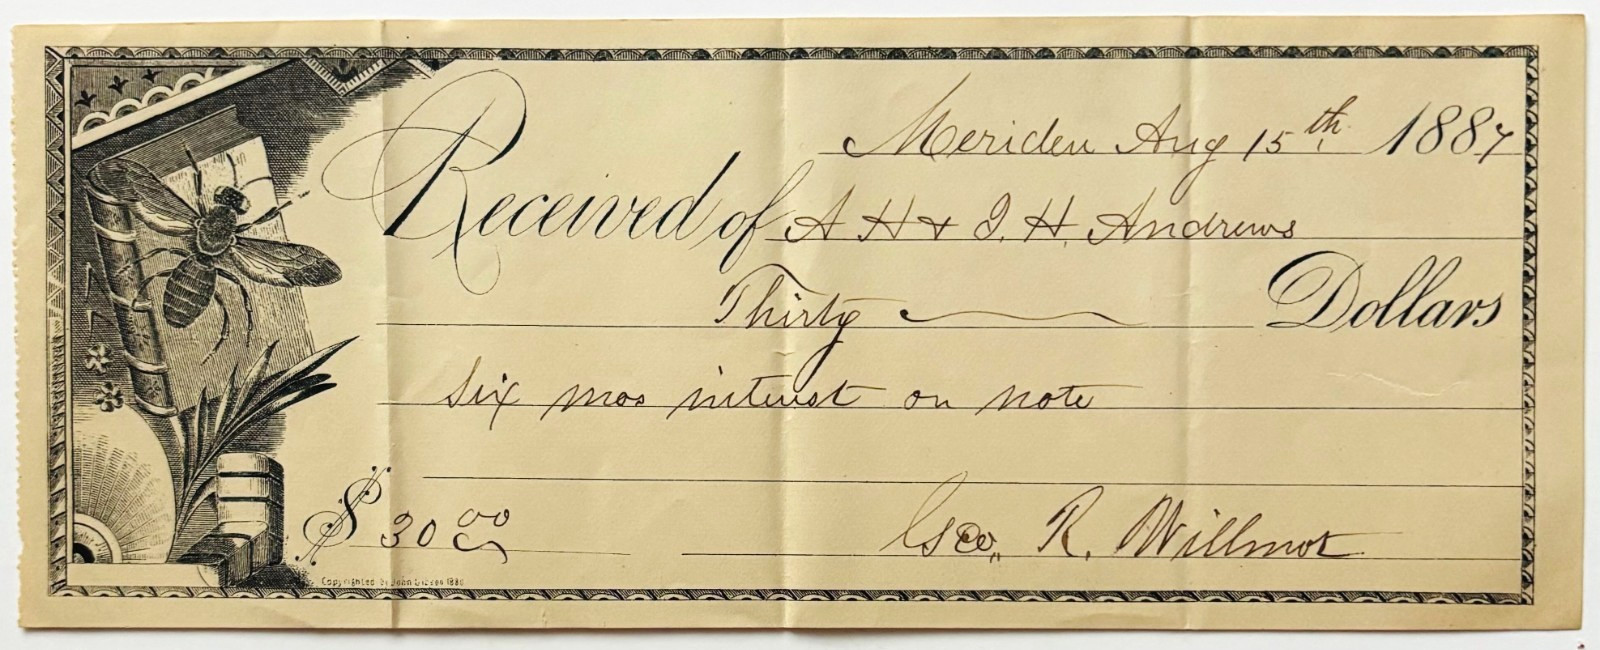 Meriden Aug 15th 1887
Received of A H & I. H. Andrews
Thirty Dollars
Six mos interest on note
$ 30 00
Geo. R. Wilmot
Copyrighted By John Gibson 188